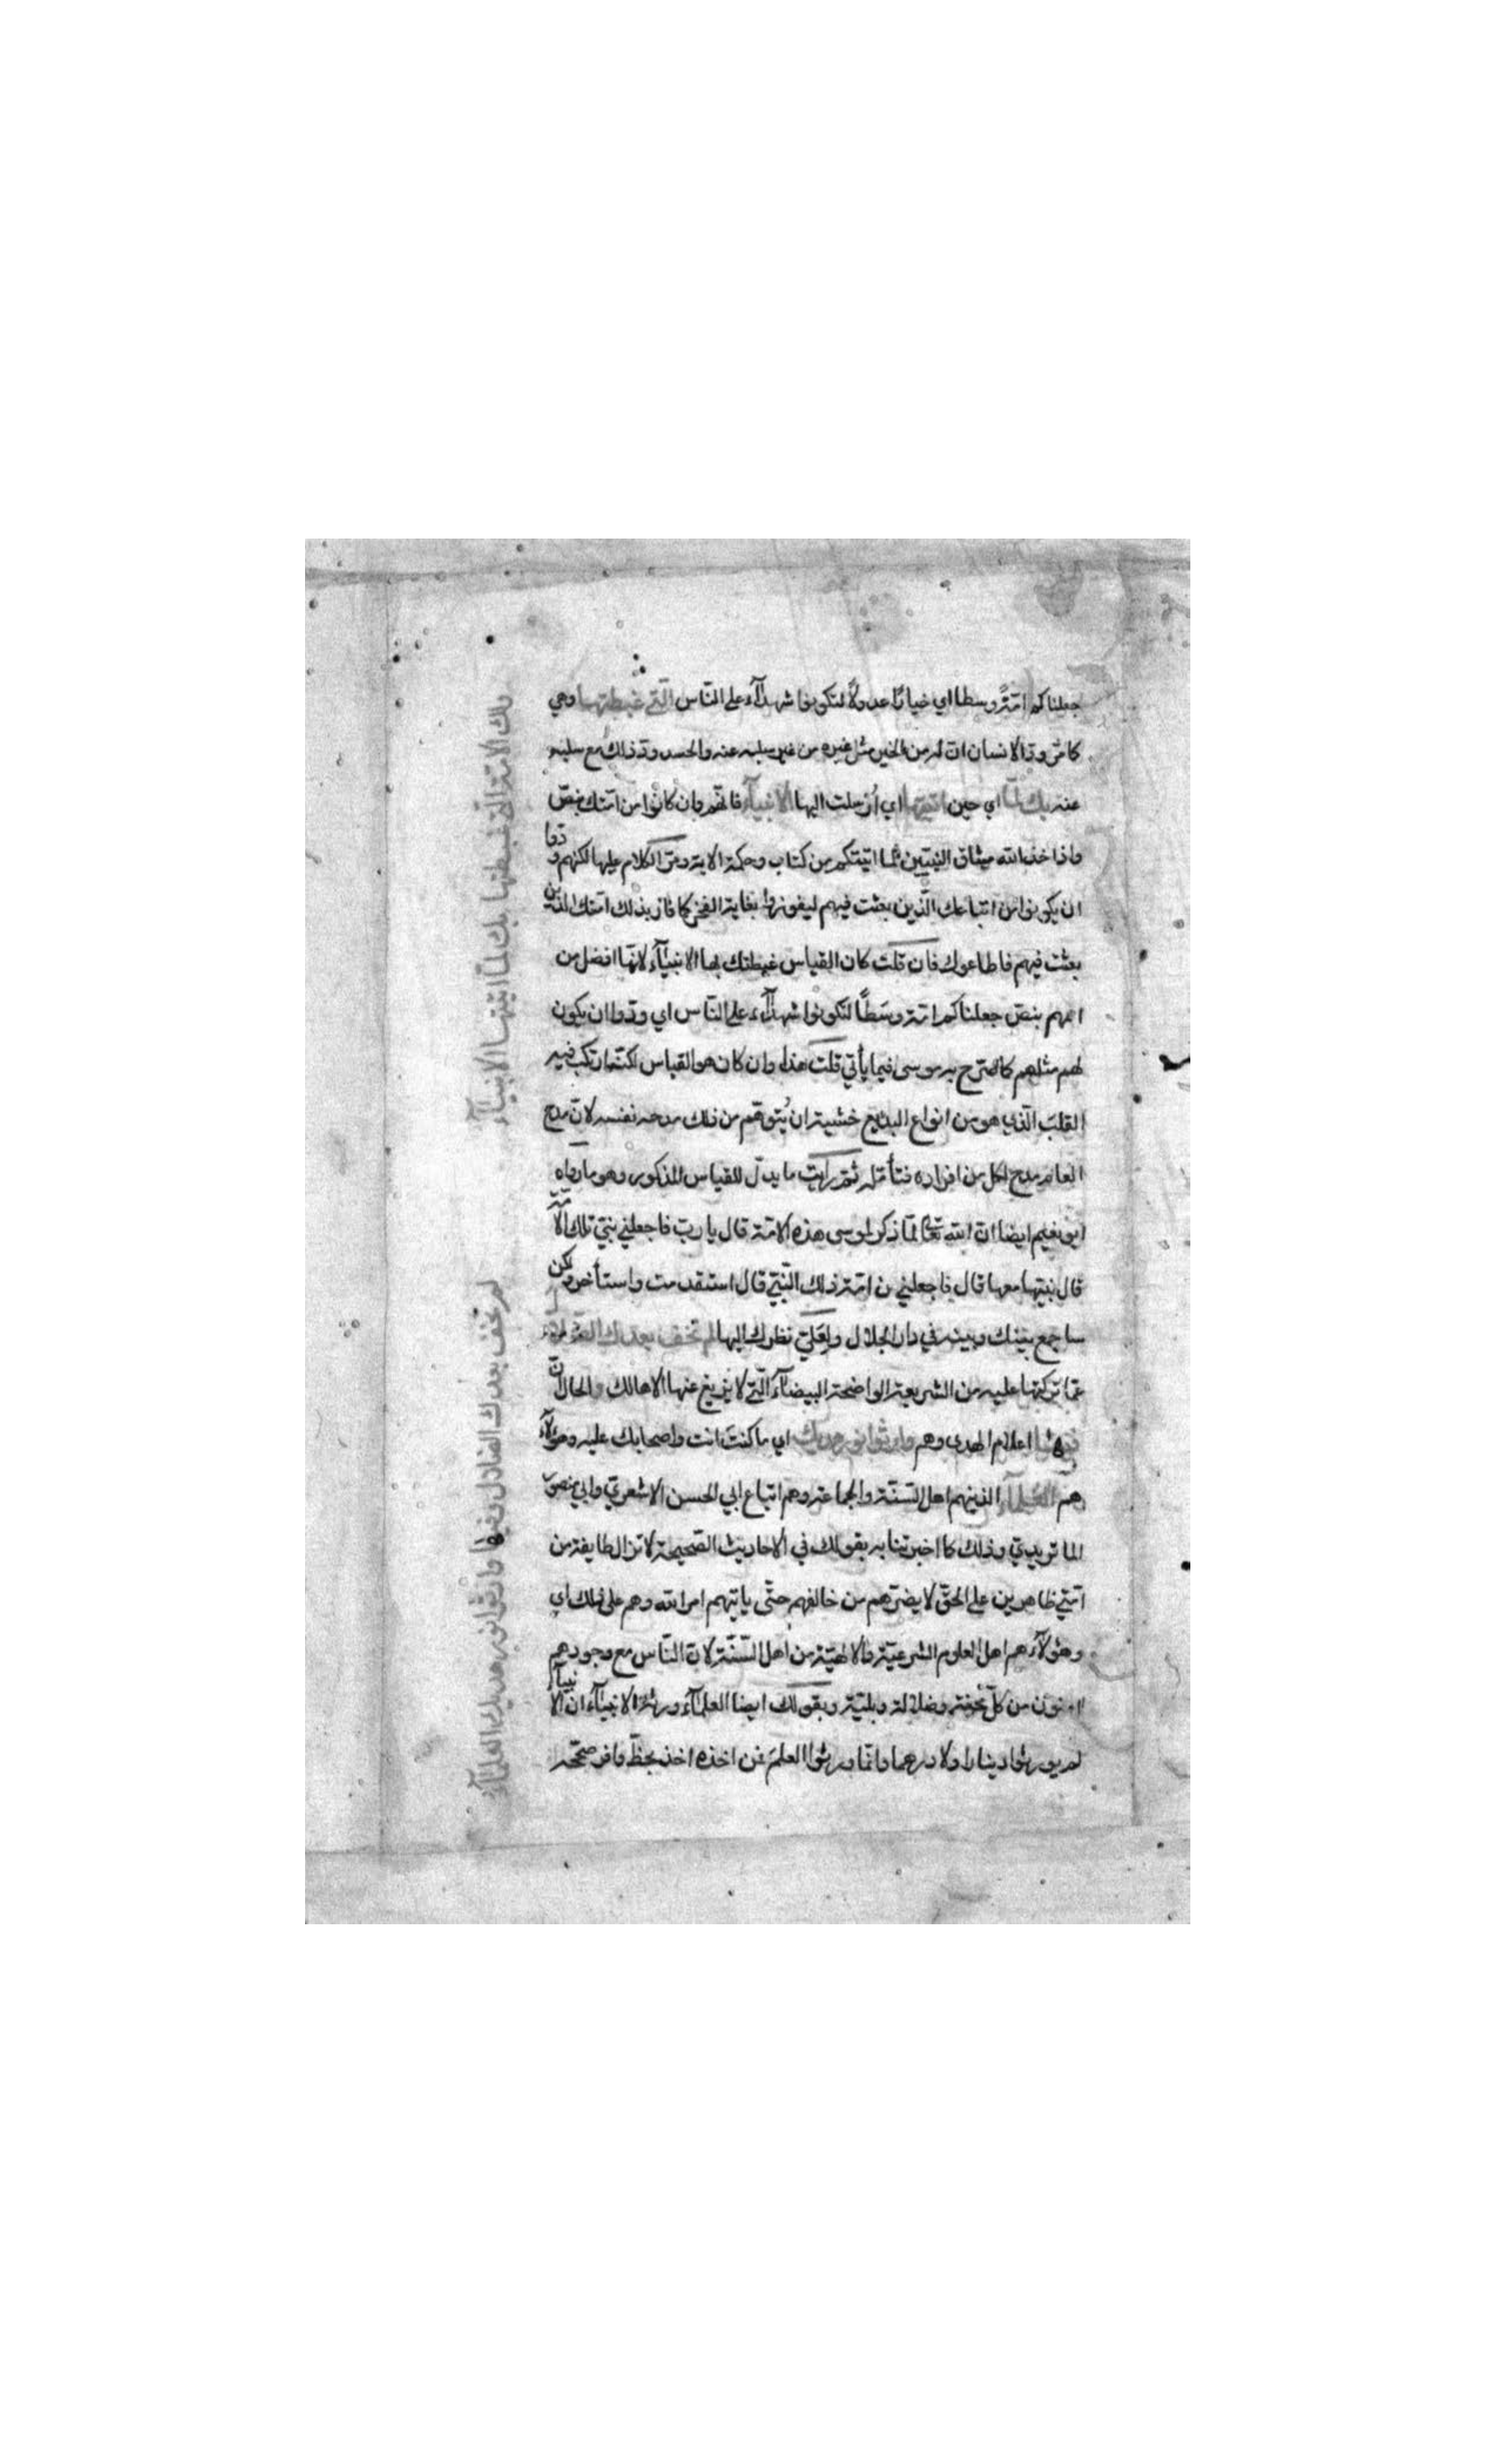 جعلناكم امّةً وسطا اي خيارًا عدولًا لتكونوا شهدآء على النّاس الّتي غبطتها وهي
كما مرّ ودّ الانسان انّ له من الخير مثل غيره من غير سلبه عنه والحسد ودّ ذلك مع سلبه
عنه بك لمّا اي حين اتيتها اي اُرسلت اليها الانبيآء فانّهم وان كانوا من امّتك بنصّ
واذ اخذ الله ميثاق النبيّين لما اتيتكم من كتاب وحكمة الاية ومرّ الكلام عليها لكنهم ودّوا
ان يكونوا من اتباعك الّذين بعثت فيهم ليفوزوا بغاية الفخر كما فاز بذلك امّتك الذين
بعثت فيهم فاطاعوك فان قلت كان القياس غبطتك بها الانبيآء لانّها افضل من
اممهم بنصّ جعلناكم امّة وسَطًا لتكونوا شهدآء على النّاس اي ودّوا ان يكون
لهم مثلهم كما صرّح به موسى فيما يأتي قلت هذا وان كان هو القياس لكنّه ارتكب فيه
القلبَ الّذي هو من انواع البديع خشية ان يُتوهّم من ذلك مدحه نفسه لانّ مدح
العام مدح لكل من افراده فتأمّله ثمّ رايت ما يدلّ للقياس المذكور وهو ما رواه
ابو نعيم ايضا انّ الله تعالى لمّا ذكر لموسى هذه الامّة قال يا ربّ فاجعلني نبيّ تلك الامّة
قال نبيّها منها قال فاجعلني من امّة ذلك النّبيّ قال استقدمت واستأخر ولكن
ساجمع بينك وبينه في دار الجلال ولعَليّ نظرك اليها لم تخف بعدك الضّلال
عمّا تركتها عليه من الشريعة الواضحة البيضآء الّتي لا يزيغ عنها الا هالك والحال انّ
فيها اعلام الهدى وهم وارثوا نور هديك اي ما كنتَ انت واصحابك عليه وهؤلآء
هم العلمآء الذينهم اهل السّنّة والجماعة وهم اتباع ابي الحسن الاشعريّ وابي منصور
الماتريديّ وذلك كما اخبرتنا به بقولك في الاحاديث الصّحيحة لا تزال طايفة من
امّتي ظاهرين على الحقّ لا يضرّهم من خالفهم حتّى ياتيهم امر الله وهم على ذلك اي
وهؤلآء هم اهل العلوم الشرعيّة والالهيّة من اهل السّنّة لانّ النّاس مع وجودهم
امنون من كلّ محنة وضلالة وبليّة وبقولك ايضا العلمآء ورثة الانبيآء ان الانبيآء
لم يورثوا دينارا ولا درهما وانّما ورثوا العلمَ فمن اخذه اخذ بحظّ وافر صحّحه
تلك الامّة الّتي غبطتها بك لمّا اتيتها الانبيآء
لم تخف بعدك الضلال وفيها وارثوا نور هديك العلمآء